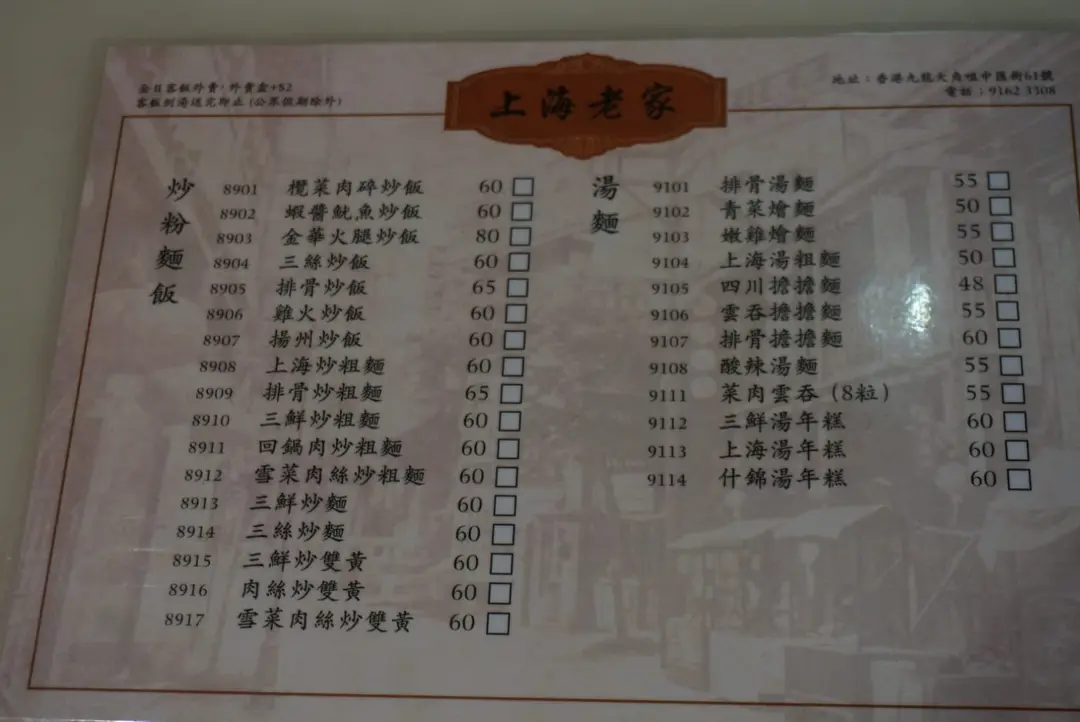 全日客飯外賣，外賣盒+$2
客飯例湯送完即止 (公眾假期除外)
上海老家
地址：香港九龍大角咀中匯街61號
電話：9162 3508
炒粉麵飯
8901 欖菜肉碎炒飯 60
8902 蝦醬魷魚炒飯 60
8903 金華火腿炒飯 80
8904 三絲炒飯 60
8905 排骨炒飯 65
8906 雞火炒飯 60
8907 揚州炒飯 60
8908 上海炒粗麵 60
8909 排骨炒粗麵 65
8910 三鮮炒粗麵 60
8911 回鍋肉炒粗麵 60
8912 雪菜肉絲炒粗麵 60
8913 三鮮炒麵 60
8914 三絲炒麵 60
8915 三鮮炒雙黃 60
8916 肉絲炒雙黃 60
8917 雪菜肉絲炒雙黃 60
湯麵
9101 排骨湯麵 55
9102 青菜燴麵 50
9103 嫩雞燴麵 55
9104 上海湯粗麵 50
9105 四川擔擔麵 48
9106 雲吞擔擔麵 55
9107 排骨擔擔麵 60
9108 酸辣湯麵 55
9111 菜肉雲吞 (8粒) 55
9112 三鮮湯年糕 60
9113 上海湯年糕 60
9114 什錦湯年糕 60